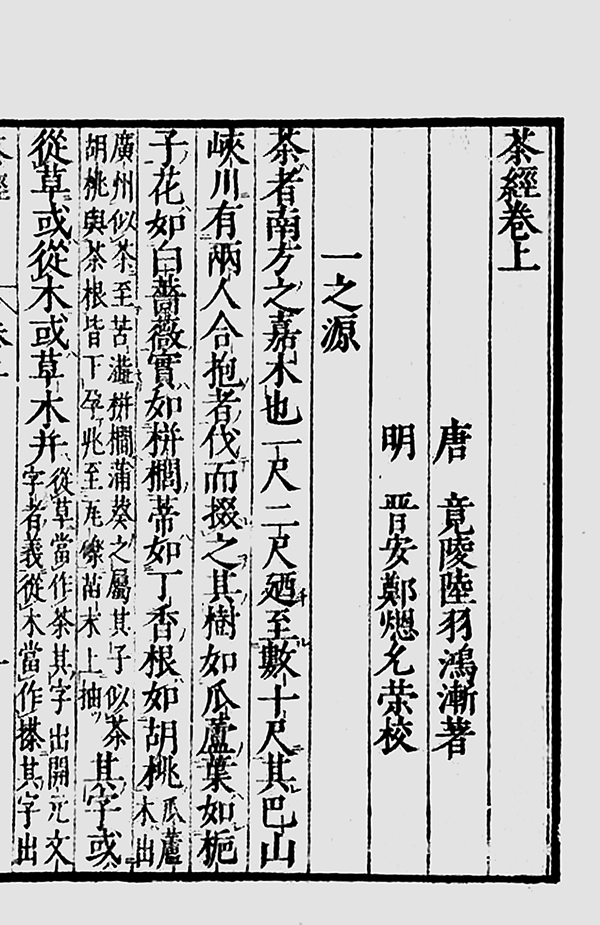 茶經卷上
唐 竟陵陸羽鴻漸著
明 晋安鄭熜允荣校
一之源
茶者南方之嘉木也一尺二尺廼至數十尺其巴山
峽川有兩人合抱者伐而掇之其樹如瓜蘆葉如梔
子花如白薔薇實如栟櫚蒂如丁香根如胡桃
瓜蘆
木出
廣州似茶至苦澁栟櫚蒲葵之屬其子似茶
胡桃與茶根皆下孕兆至瓦礫苗木上抽
其字或
從草或從木或草木并
從草當作茶其字出開元文
字者義從木當作搽其字出